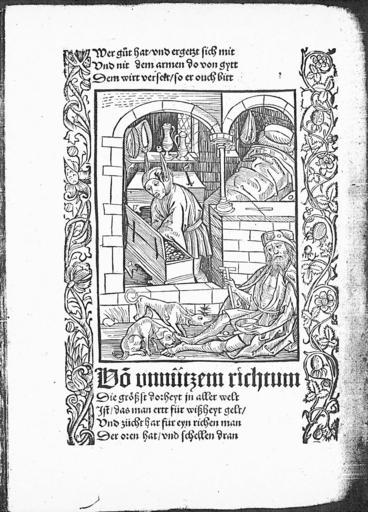 Wer gůt hat/vnd ergetzt sich mit
Vnd nit dem armen do von gytt
Dem wirt verseit/so er ouch bitt
Vō vnnützem richtum
Die größt dorheyt jn aller welt
Jst/das man eert für wißheyt gelt/
Vnd zücht har für eyn richen man
Der oren hat/vnd schellen dran